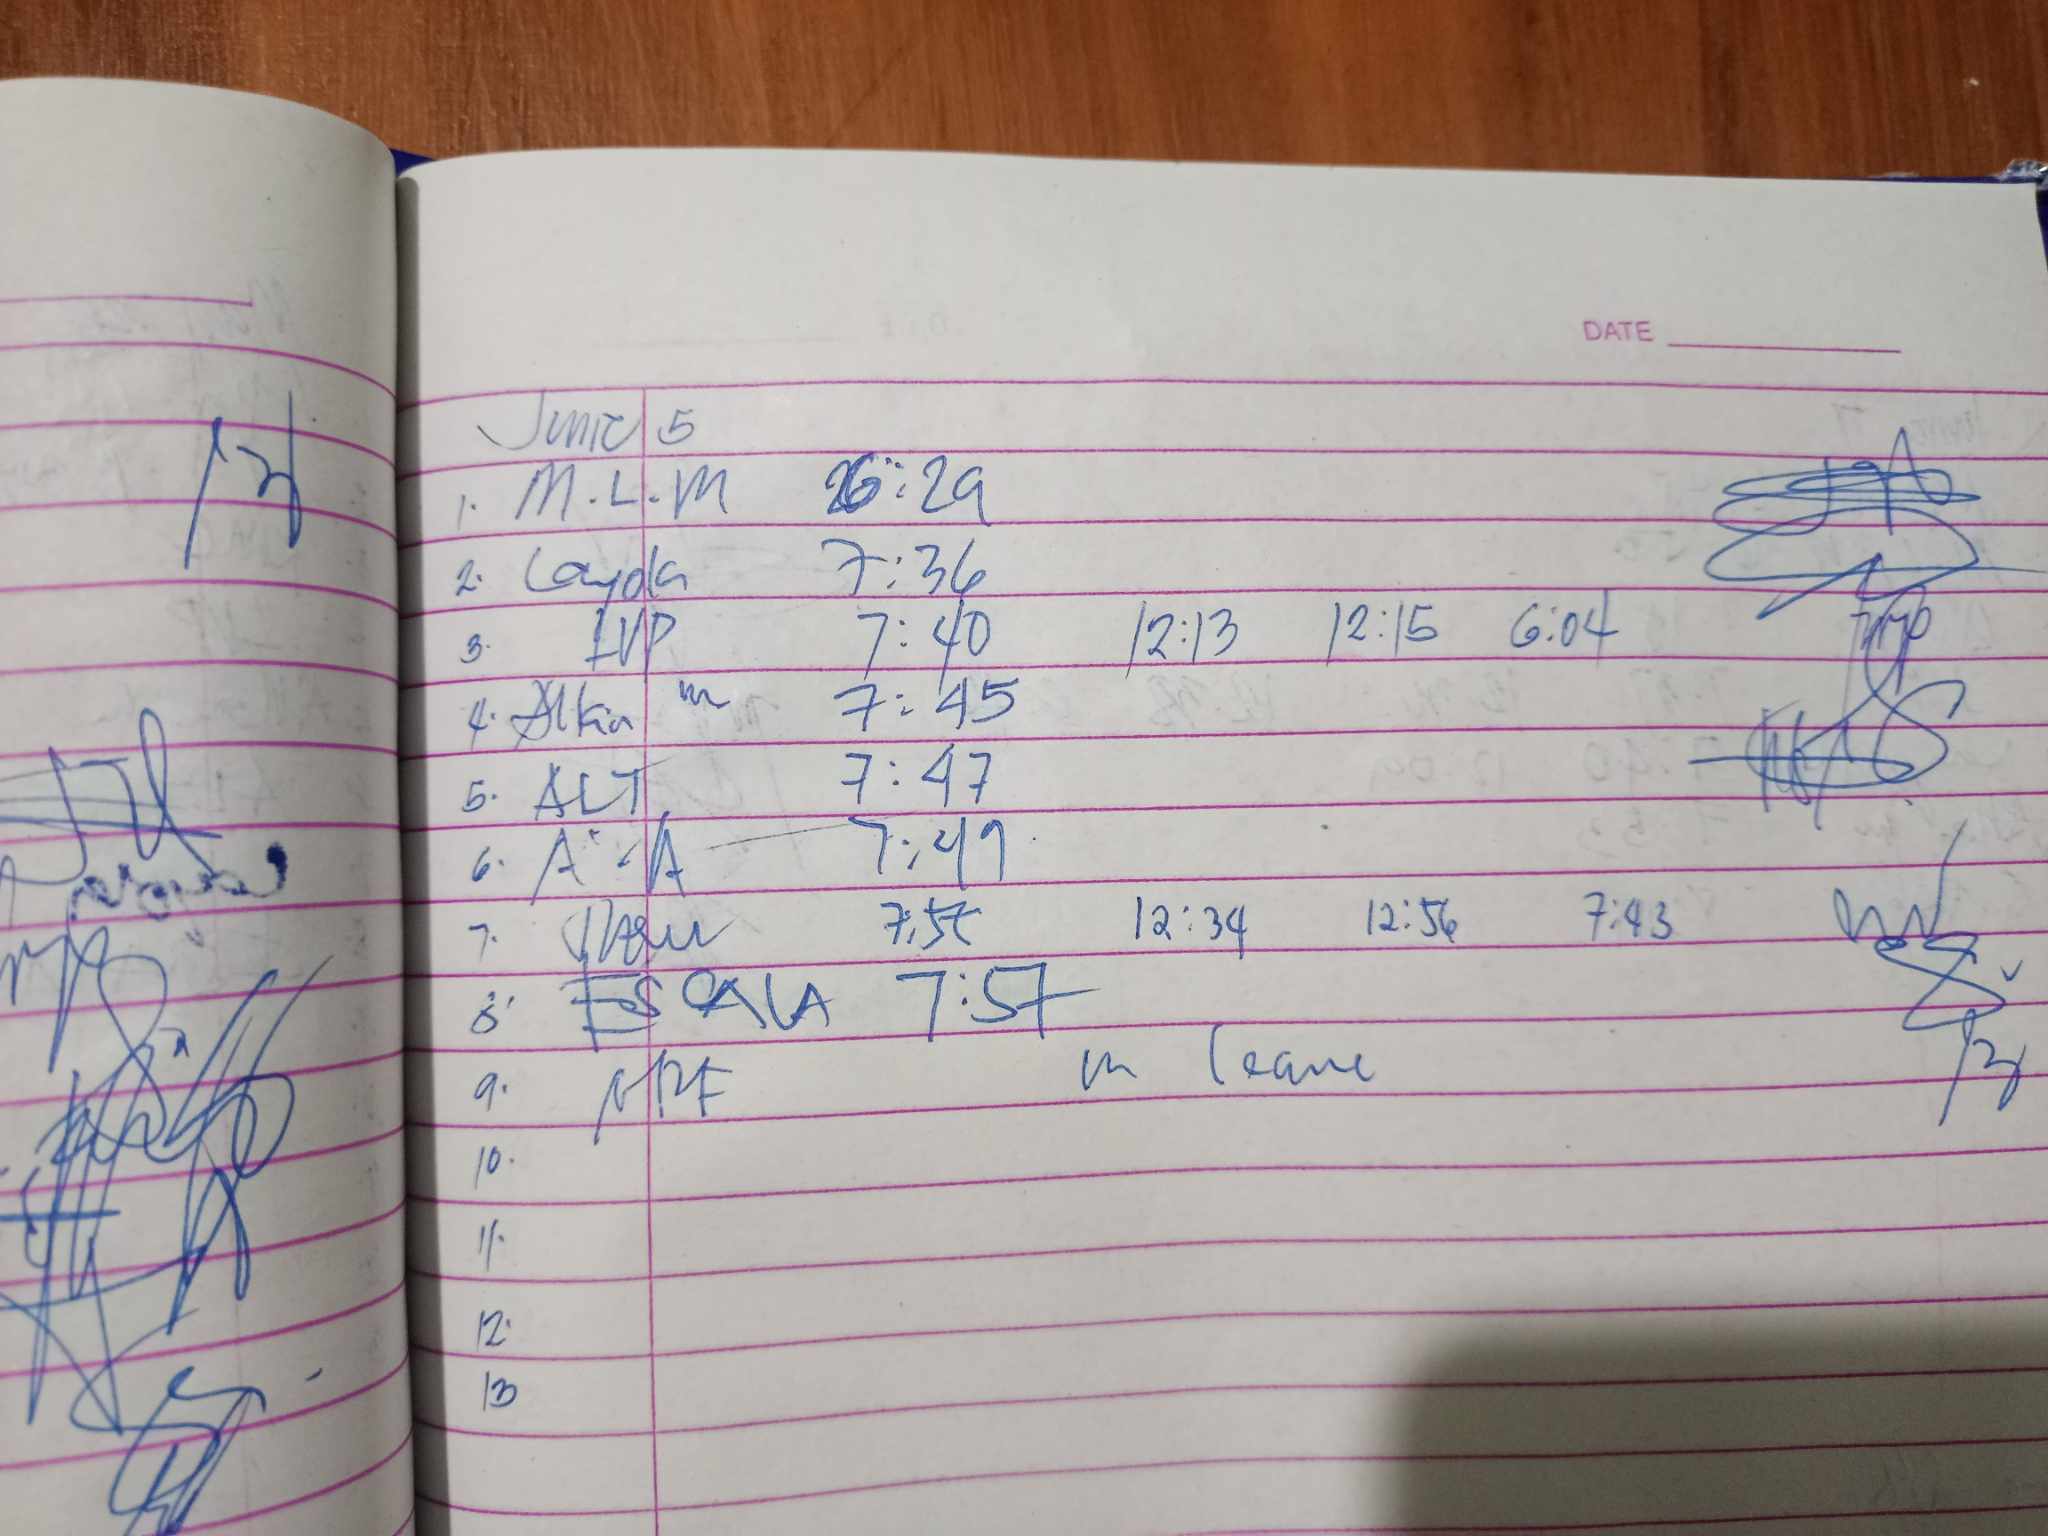 DATE
June 5
1. M.L.M 6:29
2. Layda 7:36
3. IVP 7:40 12:13 12:15 6:04
4. Alkin m 7:45
5. ALT 7:47
6. A. A 7:49
7. 7:57 12:34 12:56 7:43
8. ESCALA 7:57
9. NRF on leave
10.
11.
12.
13